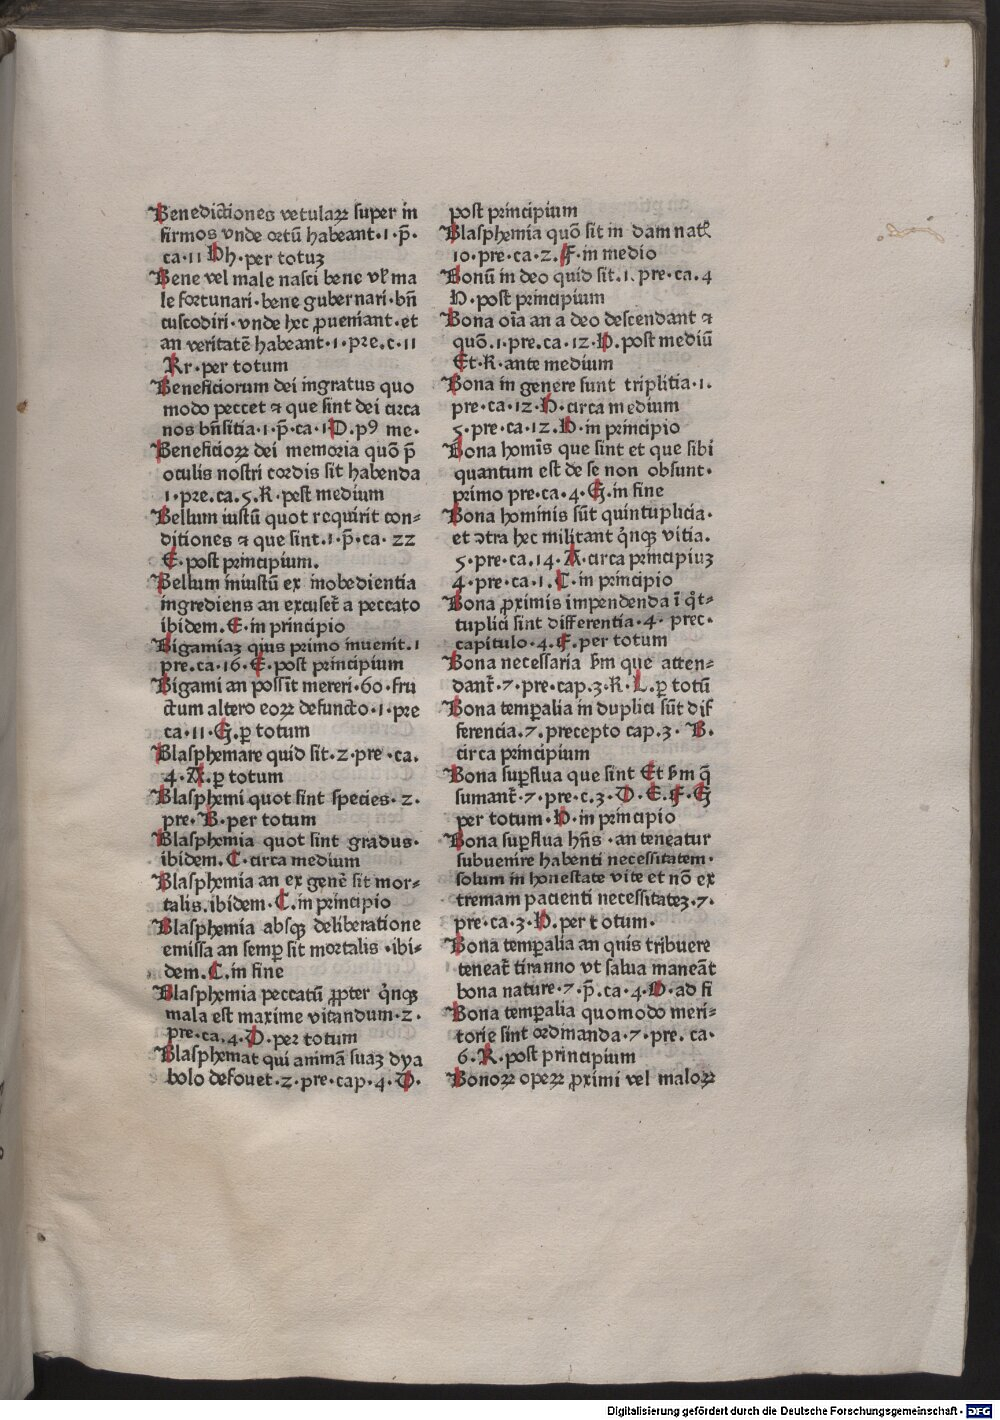 Benedictiones vetulaꝝ super in
firmos vnde ortū habeant·1·p̄·
ca·11 Hh·per totuꝫ
Bene vel male nasci bene vl̓ ma
le fortunari·bene gubernari·bn̄
custodiri·vnde hec ꝓueniant·et
an veritatē habeant·1·pre.c·11
Rr·per totum
Beneficiorum dei ingratus quo
modo peccet ⁊ que sint dei circa
nos bn̄sitia·1·p̄·ca·1D.pꝰ me·
Beneficioꝝ dei memoria quō p̄
oculis nostri cordis sit habenda
1·pre.ca.5.R.post medium
Bellum iustū quot requirit con⸗
ditiones ⁊ que sint.1·p̄·ca·22
E·post principium.
Bellum iniustū ex inobedientia
ingrediens an excuset̄ a peccato
ibidem.E·in principio
Bigamiaꝫ qius primo inuenit.1
pre.ca·16·E·post principium
Bigami an possīt mereri·60·fru
ctum altero eoꝝ defuncto·1·pre
ca·11·G.ꝑ totum
Blasphemare quid sit·2·pre·ca.
4·A.ꝑ totum
Blasphemi quot sint species·2.
pre·B·per totum
Blasphemia quot sint gradus·
ibidem.C·circa medium
Blasphemia an ex genē sit mor⸗
talis.ibidem·C.in principio
Blasphemia absqꝫ deliberatione
emissa an semꝑ sit mortalis·ibi⸗
dem.C.in fine
Blasphemia peccatū ꝓpter qͥnqꝫ
mala est maxime vitandum·2·
pre.ca.4·D·per totum
Blasphemat qui animā suaꝫ dya
bolo defouet·2·pre·cap·4·D·
post principium
Blasphemia quō sit in damnatꝭ
10·pre·ca·2.F·in medio
Bonū in deo quid sit.1.pre·ca.4
D·post principium
Bona oīa an a deo descendant ⁊
quō.1·pre.ca·12·D.post mediū
Et·R·ante medium
Bona in genere sunt triplitia·1.
pre·ca·12·D·circa medium
5·pre·ca·12.D·in principio
Bona homīs que sint et que sibi
quantum est de se non obsunt·
primo pre·ca·4·G·in fine
Bona hominis sūt quintuplicia·
et ꝯtra hec militant qͥnqꝫ vitia.
5·pre·ca.14·A·circa principiuꝫ
4·pre·ca·1.C·in principio
Bona ꝓximis impendenda ī qͣt⸗
tuplici sint differentia·4·prec·
capitulo·4.F.per totum
Bona necessaria b̄m que atten⸗
dant̄·7·pre·cap.3·R·L.ꝑ totū
Bona temꝑalia in duplici sūt dif
ferencia.7.precepto cap.3·B.
circa principium
Bona suꝑflua que sint Et b̄m q̄
sumant̄·7·pre·c.3·D·E.F·G
per totum·D·in principio
Bona suꝑflua hn̄s·an teneatur
subuenire habenti necessitatem·
solum in honestate vite et nō ex
tremam pacienti necessitateꝫ·7·
pre·ca·3·D.per totum·
Bona temꝑalia an quis tribuere
teneat̄ tiranno vt salua maneāt
bona nature·7·p̄.ca·4·D·ad fi
Bona temꝑalia quomodo meri⸗
torie sint ordinanda·7·pre.ca·
6·R·post principium
Bonoꝝ opeꝝ ꝓximi vel maloꝝ
Digitalisierung gefördert durch die Deutsche Forschungsgemeinschaft · DFG